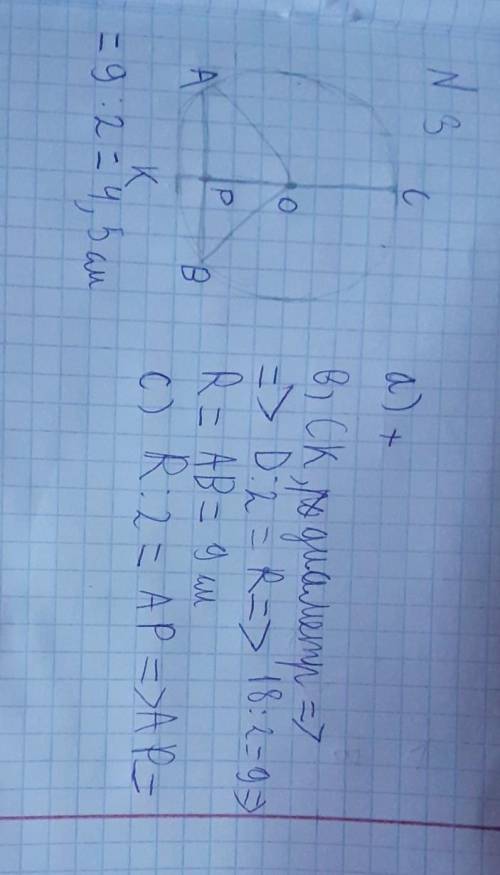 N 3
C
O
A
P
B
K
a) +
в) CK, диаметр =>
=> D:2 = R => 18:2=9 =>
R = AB = 9 см
c) R:2 = AP => AP =
= 9 : 2 = 4,5 см